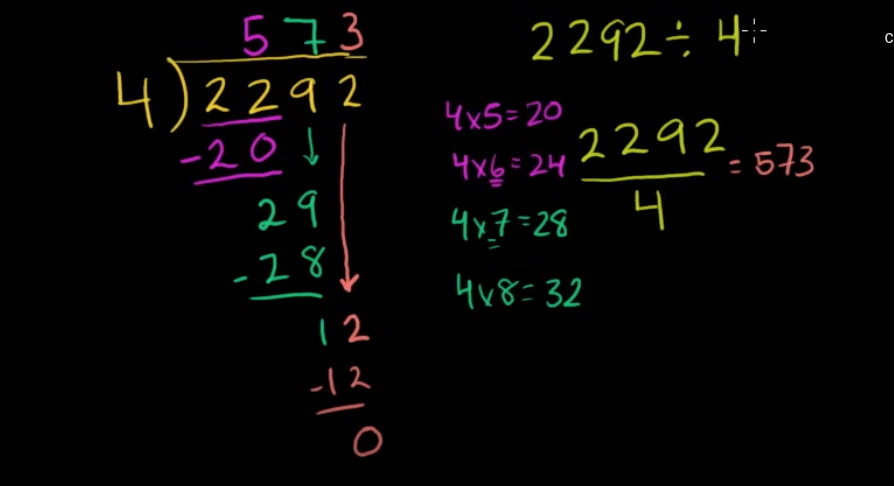 573
4)2292
-20
29
-28
12
-12
0
2292÷4
4x5=20
4x6=24
4x7=28
4x8=32
2292
4
=573
c